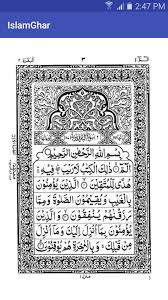 2:47 PM
IslamGhar
٣
بِسْمِ اللهِ الرَّحْمٰنِ الرَّحِيْمِ
الٓمّٓ ذٰلِكَ الْكِتٰبُ لَا رَيْبَ فِيْهِ
هُدًى لِّلْمُتَّقِيْنَ الَّذِيْنَ يُؤْمِنُوْنَ
بِالْغَيْبِ وَيُقِيْمُوْنَ الصَّلٰوةَ وَمِمَّا
رَزَقْنٰهُمْ يُنْفِقُوْنَ وَالَّذِيْنَ
يُؤْمِنُوْنَ بِمَا اُنْزِلَ اِلَيْكَ وَمَا اُنْزِلَ
مِنْ قَبْلِكَ وَبِالْاٰخِرَةِ هُمْ يُوْقِنُوْنَ